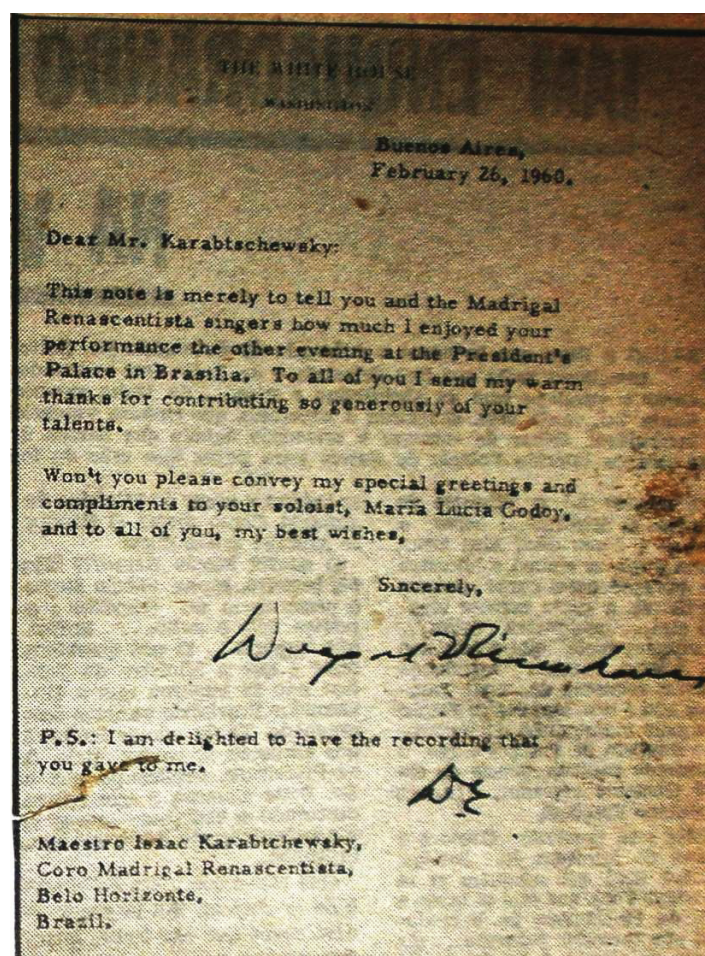 THE WHITE HOUSE
WASHINGTON
Buenos Aires,
February 26, 1960.
Dear Mr. Karabtschewsky:
This note is merely to tell you and the Madrigal
Renascentista singers how much I enjoyed your
performance the other evening at the President's
Palace in Brasilia. To all of you I send my warm
thanks for contributing so generously of your
talents.
Won't you please convey my special greetings and
compliments to your soloist, Maria Lucia Godoy,
and to all of you, my best wishes,
Sincerely,
Dwight Eisenhower
P.S.: I am delighted to have the recording that
you gave to me.
DE
Maestro Isaac Karabtchewsky,
Coro Madrigal Renascentista,
Belo Horizonte,
Brazil.